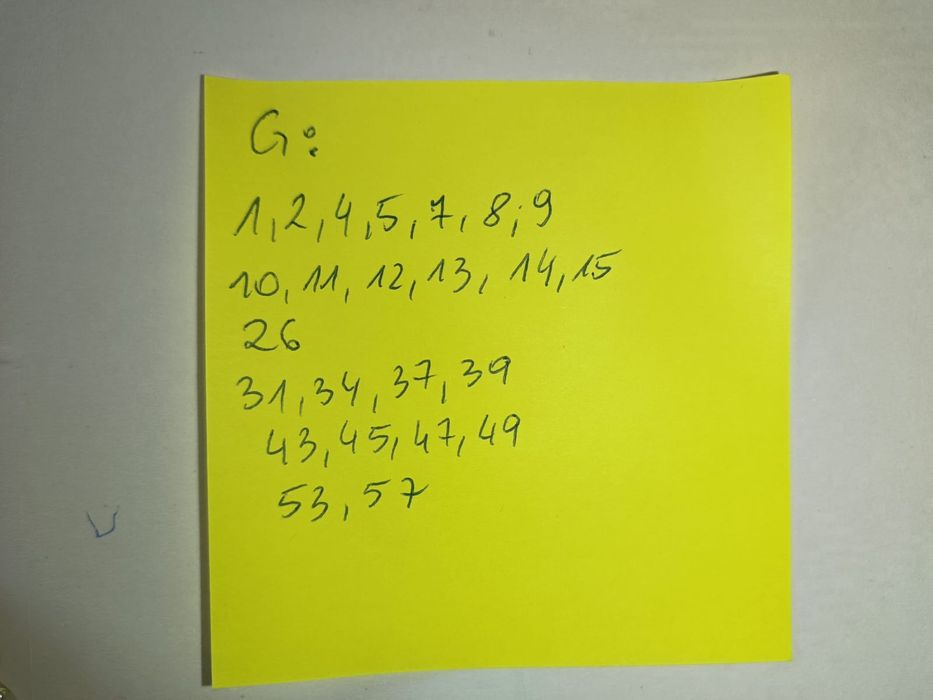 G:
1, 2, 4, 5, 7, 8, 9
10, 11, 12, 13, 14, 15
26
31, 34, 37, 39
43, 45, 47, 49
53, 57